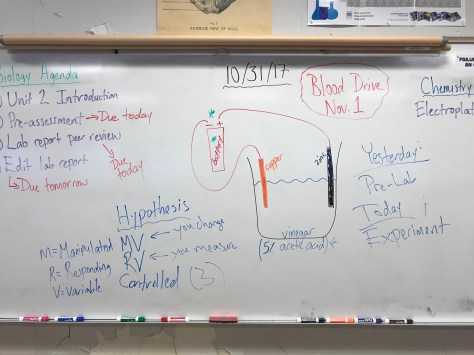 Biology Agenda
Unit 2 Introduction
Pre-assessment → Due today
Lab report peer review
↳ Due today
Edit lab report
↳ Due tomorrow
10/31/17
Blood Drive
Nov. 1
Chemistry
Electroplat
* - + *
Battery
copper
zinc
vinegar
(5% acetic acid)
Yesterday:
Pre-Lab
Today:
Experiment
Hypothesis
M = Manipulated MV ← you change
R = Responding RV ← you measure
V = Variable Controlled (3)